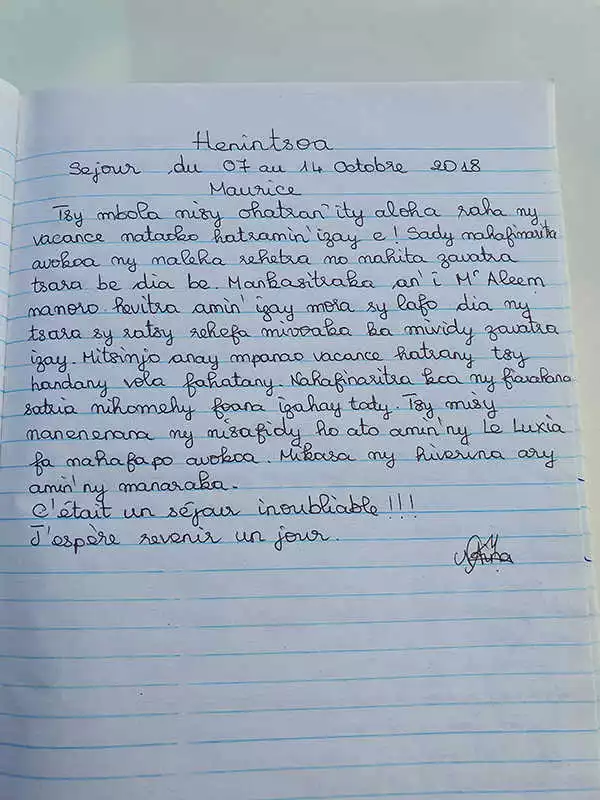 Henintsoa
Sejour du 07 au 14 Octobre 2018
Maurice
Tsy mbola nisy ohatran'ity aloha raha ny
vacance nataoko hatramin'izay e! Sady nahafinaritra
avokoa ny naleha rehetra no nahita zavatra
tsara be dia be. Mankasitraka an'i Mr Aleem
manoro hevitra amin'izay mora sy lafo dia ny
tsara sy ratsy rehefa mivoaka ka mividy zavatra
izay. Mitsinjo anay mpanao vacance hatrany tsy
handany vola fahatany. Nahafinaritra koa ny fiarahana
satria nihomehy foana izahay tody. Tsy misy
nanenenana ny nisafidy ho ato amin'ny Le Luxia
fa nahafapo avokoa. Mikasa ny hiverina ary
amin'ny manaraka.
C'était un séjour inoubliable!!!
J'espère revenir un jour.